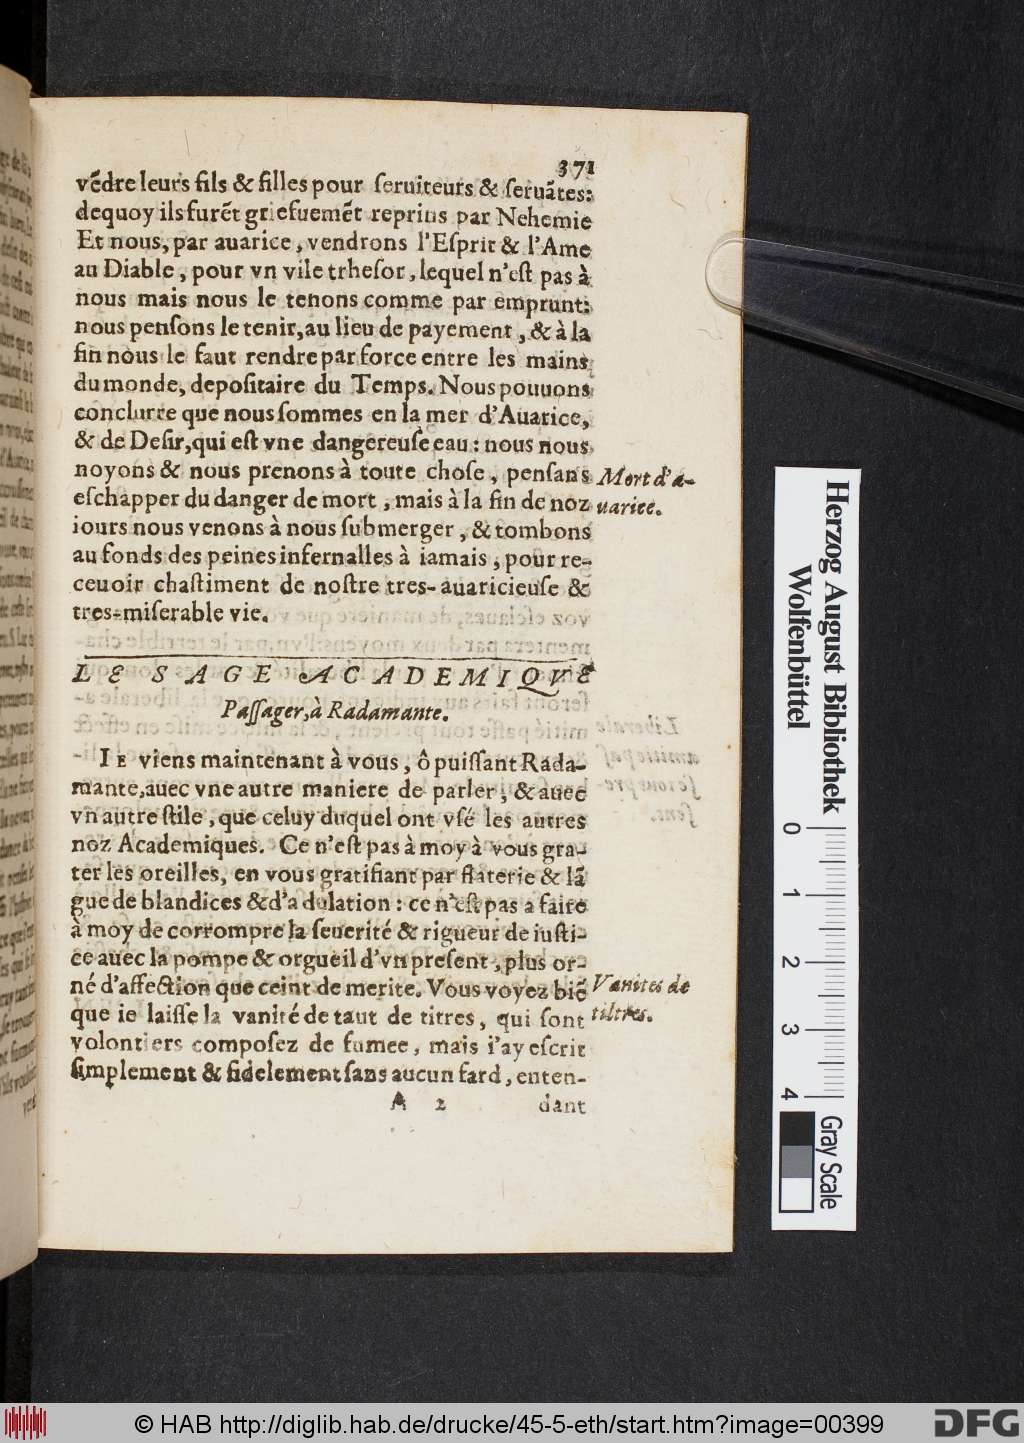 371
vẽdre leurs fils & filles pour ſeruiteurs & ſeruãtes:
dequoy ils furẽt griefuemẽt reprins par Nehemie
Et nous, par auarice, vendrons l'Eſprit & l'Ame
au Diable, pour vn vile trheſor, lequel n'eſt pas à
nous mais nous le tenons comme par emprunt:
nous penſons le tenir, au lieu de payement, & à la
fin nous le faut rendre par force entre les mains
du monde, depoſitaire du Temps. Nous pouuons
conclurre que nous ſommes en la mer d'Auarice,
& de Deſir, qui eſt vne dangereuſe eau: nous nous
noyons & nous prenons à toute choſe, penſans
eſchapper du danger de mort, mais à la fin de noz
iours nous venons à nous ſubmerger, & tombons
au fonds des peines infernalles à iamais, pour re-
ceuoir chaſtiment de noſtre tres-auaricieuſe &
tres-miſerable vie.
Mort d'a-
uarice.
LE SAGE ACADEMIQVE
Paſſager, à Radamante.
IE viens maintenant à vous, ô puiſſant Rada-
mante, auec vne autre maniere de parler, & auec
vn autre ſtile, que celuy duquel ont vſé les autres
noz Academiques. Ce n'eſt pas à moy à vous gra-
ter les oreilles, en vous gratifiant par flaterie & lã
gue de blandices & d'adulation: ce n'eſt pas a faire
à moy de corrompre la ſeuerité & rigueur de iuſti-
ce auec la pompe & orgueil d'vn preſent, plus or-
né d'affection que ceint de merite. Vous voyez biẽ
que ie laiſſe la vanité de taut de titres, qui ſont
volontiers compoſez de fumee, mais i'ay eſcrit
ſimplement & fidelement ſans aucun fard, enten-
Vanites de
tiltres.
A 2 dant
Herzog August Bibliothek
Wolfenbüttel
0 1 2 3 4
Gray Scale
© HAB http://diglib.hab.de/drucke/45-5-eth/start.htm?image=00399
DFG